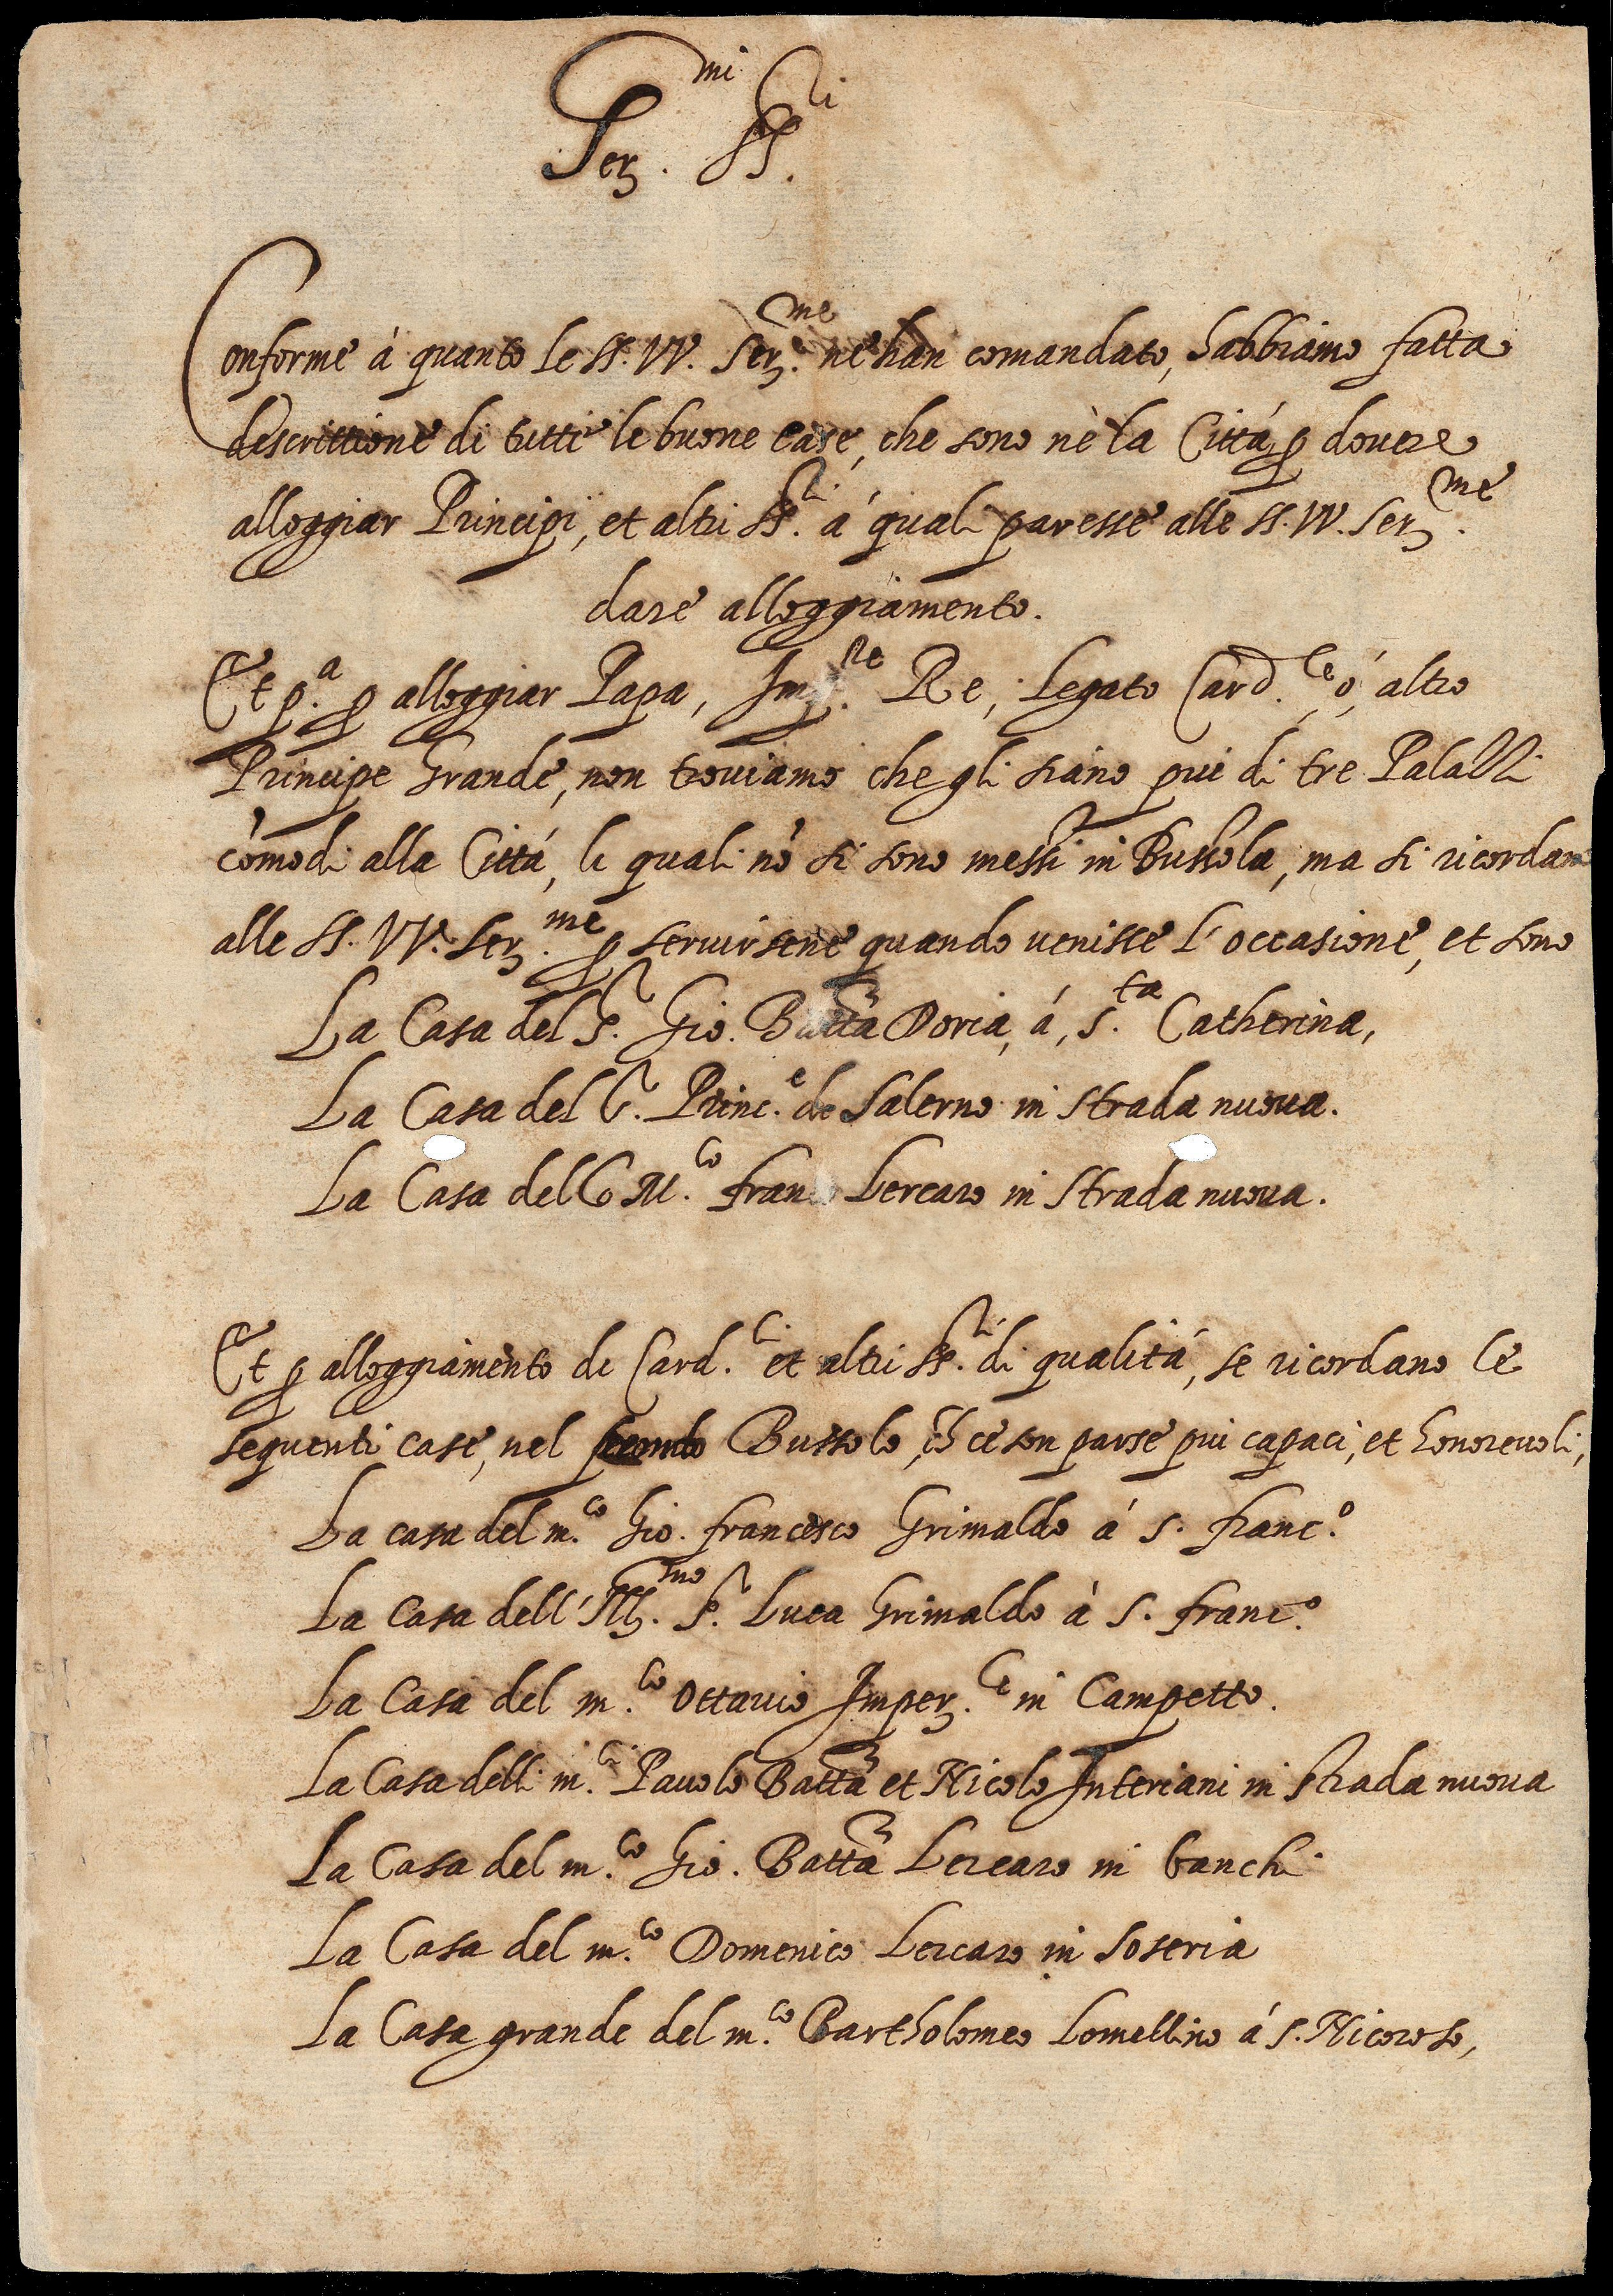 Ser.mi SS.ri
Conforme á quanto le SS. VV. Ser.me ne han comandato, habbiamo fatta
descrittione di tutte le buone case, che sono nè la Cittá p dovere
alloggiar Principi, et altri SS.ri á quali paresse alle SS. VV. Ser.me
dare alloggiamento.
Et p.a p alloggiar Papa, Imp.re Re, Legato Card.le ó, altro
Principe Grande, non troviamo che gli siano piu di tre Palazzi
comodi alla Cittá, li quali nō si sono messi in Bussola, ma si ricordano
alle SS. VV. Ser.me p servirsene quando venisse l'occasione, et sono
La Casa del S.r Gio. Batta Doria, á, S.ta Catherina,
La Casa del S.r Princ.e de Salerno in strada nuova.
La Casa del q M.co Franco Lercaro in strada nuova.
Et p alloggiamento di Card.li et altri SS.ri di qualitá, se ricordano le
sequenti case, nel Bussolo, ch ce son parse piu capaci, et honorevoli,
La casa del m.co Gio. Francesco Grimaldo á S. Franc.o
La Casa dell'Ill.mo S.r Luca Grimaldo à S. Franc.o
La Casa del m.co Ottavio Imper.le in Campetto.
La Casa delli m.ci Pavolo Batta et Nicolo Interiani in strada nuova
La Casa del m.co Gio. Batta Lercaro in banchi
La Casa del m.co Domenico Lercaro in Soseria
La Casa grande del m.co Bartholomeo Lomellino á S. Nicoroso,